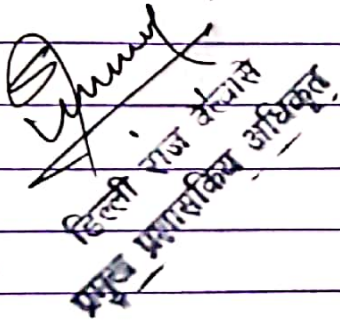 डिल्ली राज वाग्ले
प्रमुख प्रशासकिय अधिकृत